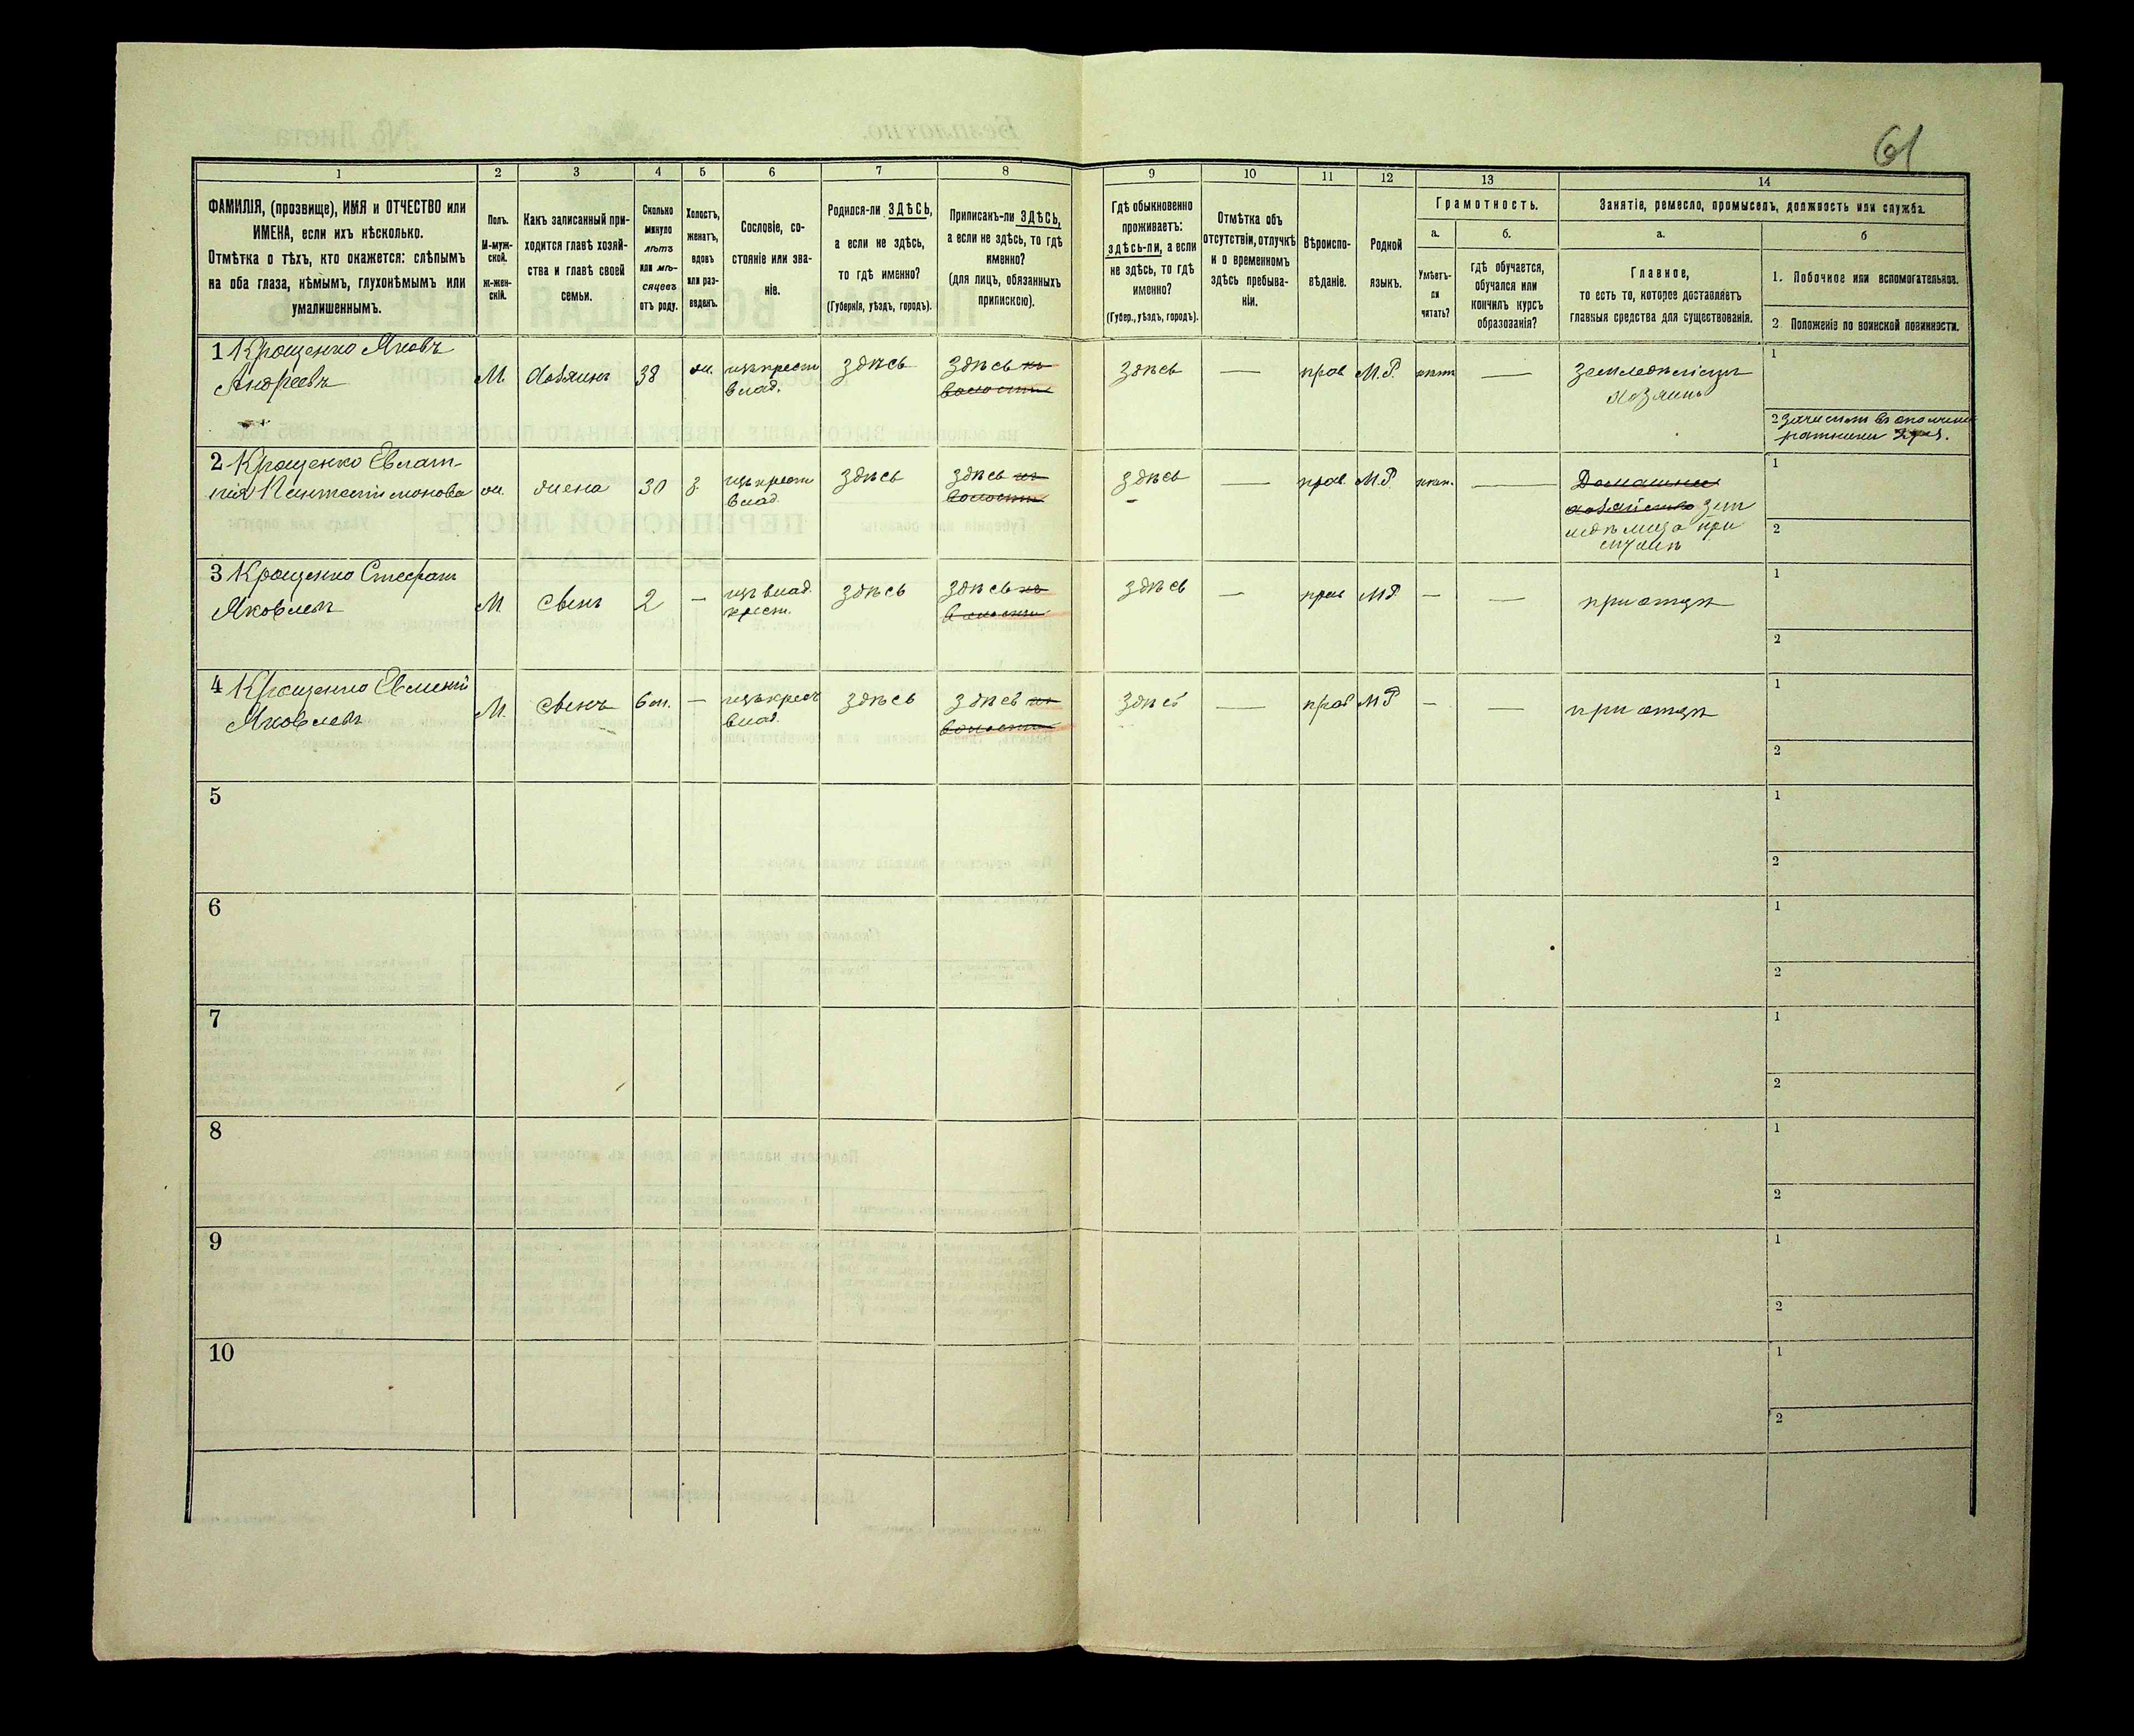 61
1 2 3 4 5 6 7 8 9 10 11 12 13 14
ФАМИЛІЯ, (прозвище), ИМЯ и ОТЧЕСТВО или
ИМЕНА, если ихъ нѣсколько.
Отмѣтка о тѣхъ, кто окажется: слѣпымъ
на оба глаза, нѣмымъ, глухонѣмымъ или
умалишеннымъ.
Полъ.
М-муж-
ской.
ж-жен-
скій.
Какъ записанный при-
ходится главѣ хозяй-
ства и главѣ своей
семьи.
Сколько
минуло
лѣтъ
или мѣ-
сяцевъ
отъ роду.
Холостъ,
женатъ,
вдовъ
или раз-
веденъ.
Сословіе, со-
стояніе или зва-
ніе.
Родился-ли ЗДѢСЬ,
а если не здѣсь,
то гдѣ именно?
(Губернія, уѣздъ, городъ).
Приписанъ-ли ЗДѢСЬ,
а если не здѣсь, то гдѣ
именно?
(для лицъ, обязанныхъ
припискою).
Гдѣ обыкновенно
проживаетъ:
здѣсь-ли, а если
не здѣсь, то гдѣ
именно?
(Губер., уѣздъ, городъ).
Отмѣтка объ
отсутствіи, отлучкѣ
и о временномъ
здѣсь пребыва-
ніи.
Вѣроиспо-
вѣданіе.
Родной
языкъ.
Грамотность.
а.
Умѣетъ-
ли
читать?
б.
гдѣ обучается,
обучался или
кончилъ курсъ
образованія?
Занятіе, ремесло, промыселъ, должность или служба.
а.
Главное,
то есть то, которое доставляетъ
главныя средства для существованія.
б
1. Побочное или вспомогательное.
2 Положеніе по воинской повинности.
1 Крощенко Яковъ
Андреевъ
М. хозяинъ 38 ж. изъ крест
влад. здѣсь здѣсь
волости здѣсь — прав М.Р. нѣтъ — земледѣліемъ
хозяинъ
1
2
2 Крощенко Евлам-
пія Пантелимонова
ж. жена 30 з. изъ крест
влад. здѣсь здѣсь
волости здѣсь — прав. М.Р. нѣтъ. — Домашнее
хозяйство
при
1
2
3 Крощенко Стефанъ
Яковлевъ
М сынъ 2 — изъ влад.
крест. здѣсь здѣсь
волости здѣсь — прав М.Р — — при отцѣ
1
2
4 Крощенко
Яковлевъ
М. сынъ 6 м. — изъ крест
влад. здѣсь здѣсь
волости здѣсь — прав М Р — — при отцѣ
1
2
5
1
2
6
1
2
7
1
2
8
1
2
9
1
2
10
1
2